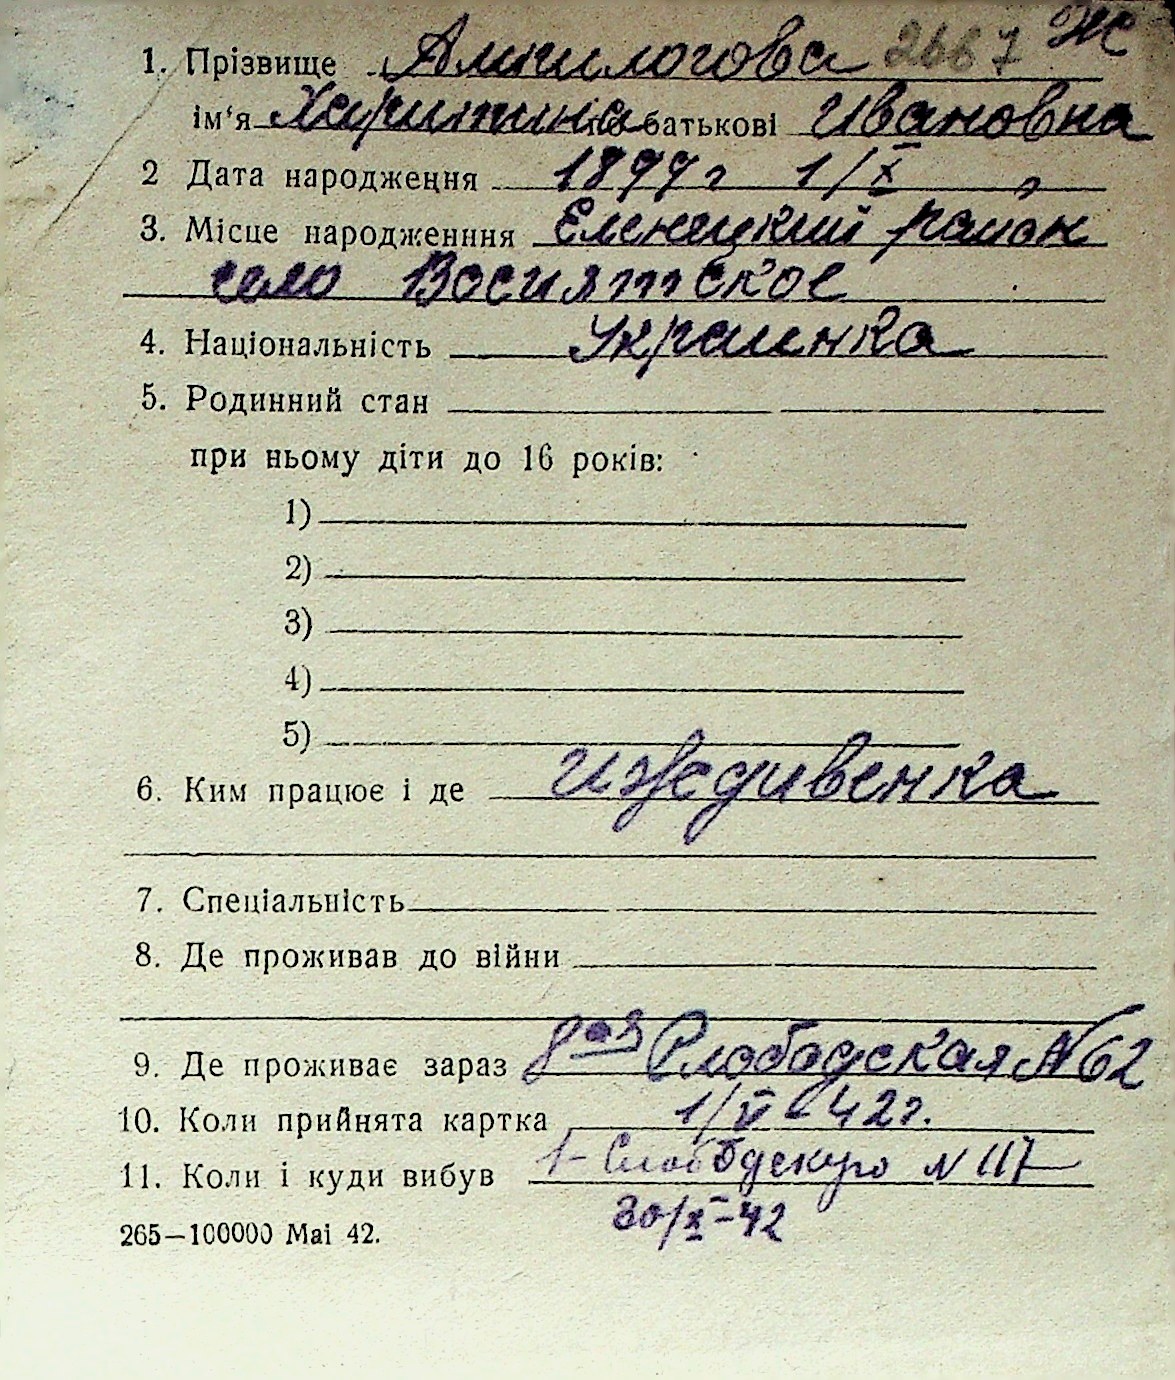 1. Прізвище Амтилогова 2667 Ж
ім'я Харитина по батькові Ивановна
2 Дата народження 1899 г 1/X
3. Місце народженння Еленецкий район
село Восиятское
4. Національність Украинка
5. Родинний стан
при ньому діти до 16 років:
1)
2)
3)
4)
5)
6. Ким працює і де иждивенка
7. Спеціальність
8. Де проживав до війни
9. Де проживає зараз 8ая Слободская №62
10. Коли прийнята картка 1/V-42г.
11. Коли і куди вибув 1-Слободскую № 117
30/X-42
265—100000 Mai 42.